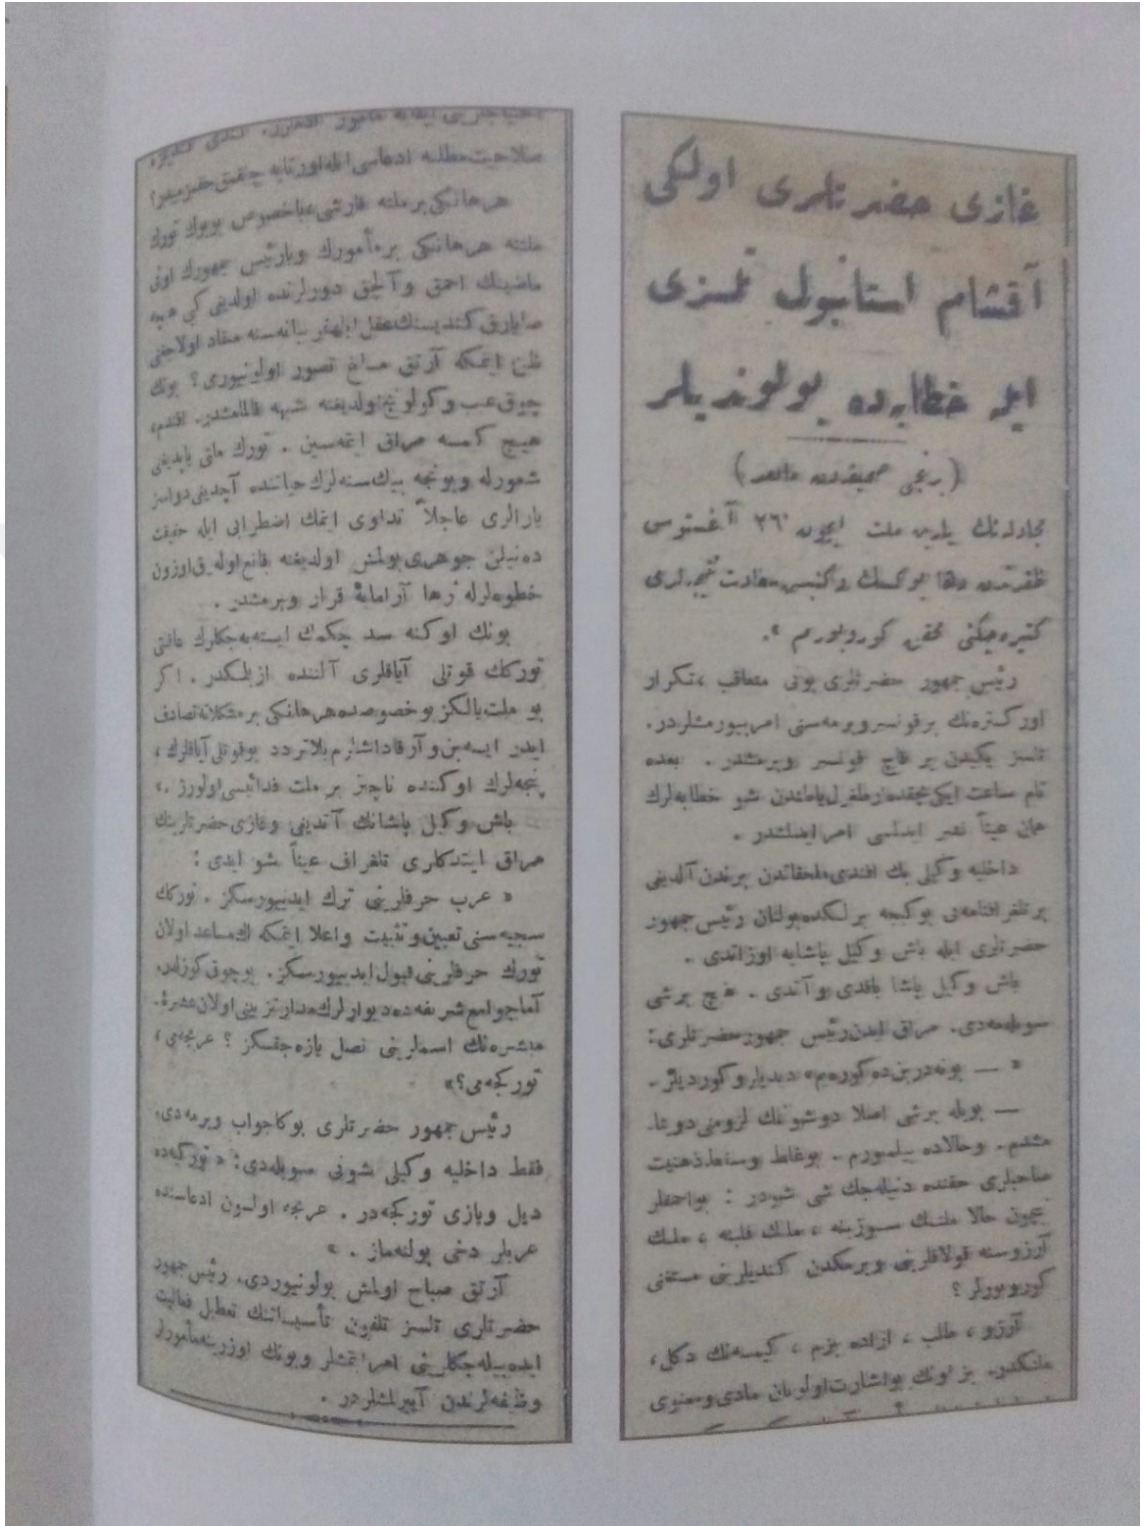 غازی حضرتلری اولکی
آقشام استانبول تلسزی
ایله خطابه‌ده بولوندیلر
(برنجی صحیفه‌دن مابعد)
مجادله‌نك یاپان ملت ایچون ٢٦ آغستوس
ظفرندن دها یوكسك وكنیش سعادت نتیجه‌لری
كتیره‌جكنی محقق كورویورم ».
رئیس جمهور حضرتلری بونی متعاقب ، تكرار
اوركستره‌نك برقونسر ویرمه‌سنی امر بیورمشلردر.
تلسز یكیدن بر قاچ قونسر ویرمشدر . بعده
تام ساعت ایكی بچقده طرفلرندن شو خطابه‌لرك
همان عیناً نشر ایدلمسی امر ایدلمشدر .
داخلیه وكیلی بك افندی ملحقاتدن برندن آلدیغی
بر تلغرافنامه‌یی بو كیجه برلكده بولنان رئیس جمهور
حضرتلری ایله باش وكیل پاشایه اوزاتدی .
باش وكیل پاشا باقدی و آتدی . هیچ برشی
سویله‌مه‌دی. مراق ایدن رئیس جمهور حضرتلری:
« — بونه‌در بن‌ده كوره‌یم» دیدیلر و كوردیلر .
— بویله برشی اصلا دوشونمك لزومنی دویما-
مشدم. وحالاده بیلمیورم . بوغلط وسقط ذهنیت
صاحبلری حقنده دنیله‌جك شی شودر : بواحمقلر
نیچون حالا ملتك سوزینه ، ملتك قلبنه ، ملتك
آرزوسنه قولاقلرینی ویرمكدن كندیلرینی مستغنی
كورویورلر ؟
آرزو ، طلب ، اراده بزم ، كیمسه‌نك دكل،
ملتكدر. بز اونك بواشارت اولونان مادی ومعنوی
احتیاجلرینی ایفایه مأمور افرادز. كندی كندیمزه
صلاحیت مطلقه ادعاسی ایله اورتایه چیقمق حقمزمیدر؟
هر هانكی بر ملته قارشی علی‌الخصوص بویوك تورك
ملتنه هر هانكی بر مأمورك ویا رئیس جمهورك اونی
ماضینك احمق و آلچق دورلرنده اولدیغی كبی هیچه
صایارق كندیسنك عقل ابلهفریبانه‌سنه منقاد اولاجغنی
ظن ایتمكه آرتق مساغ تصور اولونیورمی ؟ بونك
چوق عیب و كولونچ اولدیغنه شبهه قالمامشدر. افندم،
هیچ كیمسه مراق ایتمه‌سین . تورك ملتی یاپدیغی
شعورله وبونجه بیك سنه‌لرك حیاتنده آچدیغی دواسز
یارالری عاجلاً تداوی ایتمك اضطرابی ایله حقیقت
ده‌نیلن جوهری بولمش اولدیغنه قانع اوله‌رق اوزون
خطوه‌لرله رها آرامایه قرار ویرمشدر .
بونك اوكنه سد چكمك ایسته‌یه‌جكلرك عاقبتی
توركك قوتلی آیاقلری آلتنده ازیلمكدر . اكر
بو ملت یالكز بو خصوصده هرهانكی بر مشكلاته تصادف
ایدر ایسه بن و آرقاداشلرم بلاتردد بوقوتلی آیاقلرك ،
پنجه‌لرك اوكنده ناچیز بر ملت فدائیسی اولورز .»
باش وكیل پاشانك آتدیغی و غازی حضرتلرینك
مراق ایتدكلری تلغراف عیناً شو ایدی :
« عرب حرفلرینی ترك ایدیورسكز . توركك
سجیه‌سنی تعیین و تثبیت و اعلا ایتمكه اك مساعد اولان
تورك حرفلرینی قبول ایدیورسكز. بو چوق كوزلدر.
آما جوامع شریفه‌ده دیوارلرك مدار تزیینی اولان عشرهٔ
مبشره‌نك اسملرینی نصل یازه‌جقسكز ؟ عربجه‌می ،
توركجه‌می ؟»
رئیس جمهور حضرتلری بوكا جواب ویرمه‌دی.
فقط داخلیه وكیلی شونی سویله‌دی: « توركیه‌ده
دیل ویازی توركجه‌در . عربجه اولسون ادعاسنده
عربلر دخی بولنه‌ماز . »
آرتق صباح اولمش بولونیوردی. رئیس جمهور
حضرتلری تلسز تلفون تأسیساتنك تعطیل فعالیت
ایده‌بیله‌جكلرینی امر ایتمشلر وبونك اوزرینه مأمورلر
وظیفه‌لرندن آیریلمشلردر .